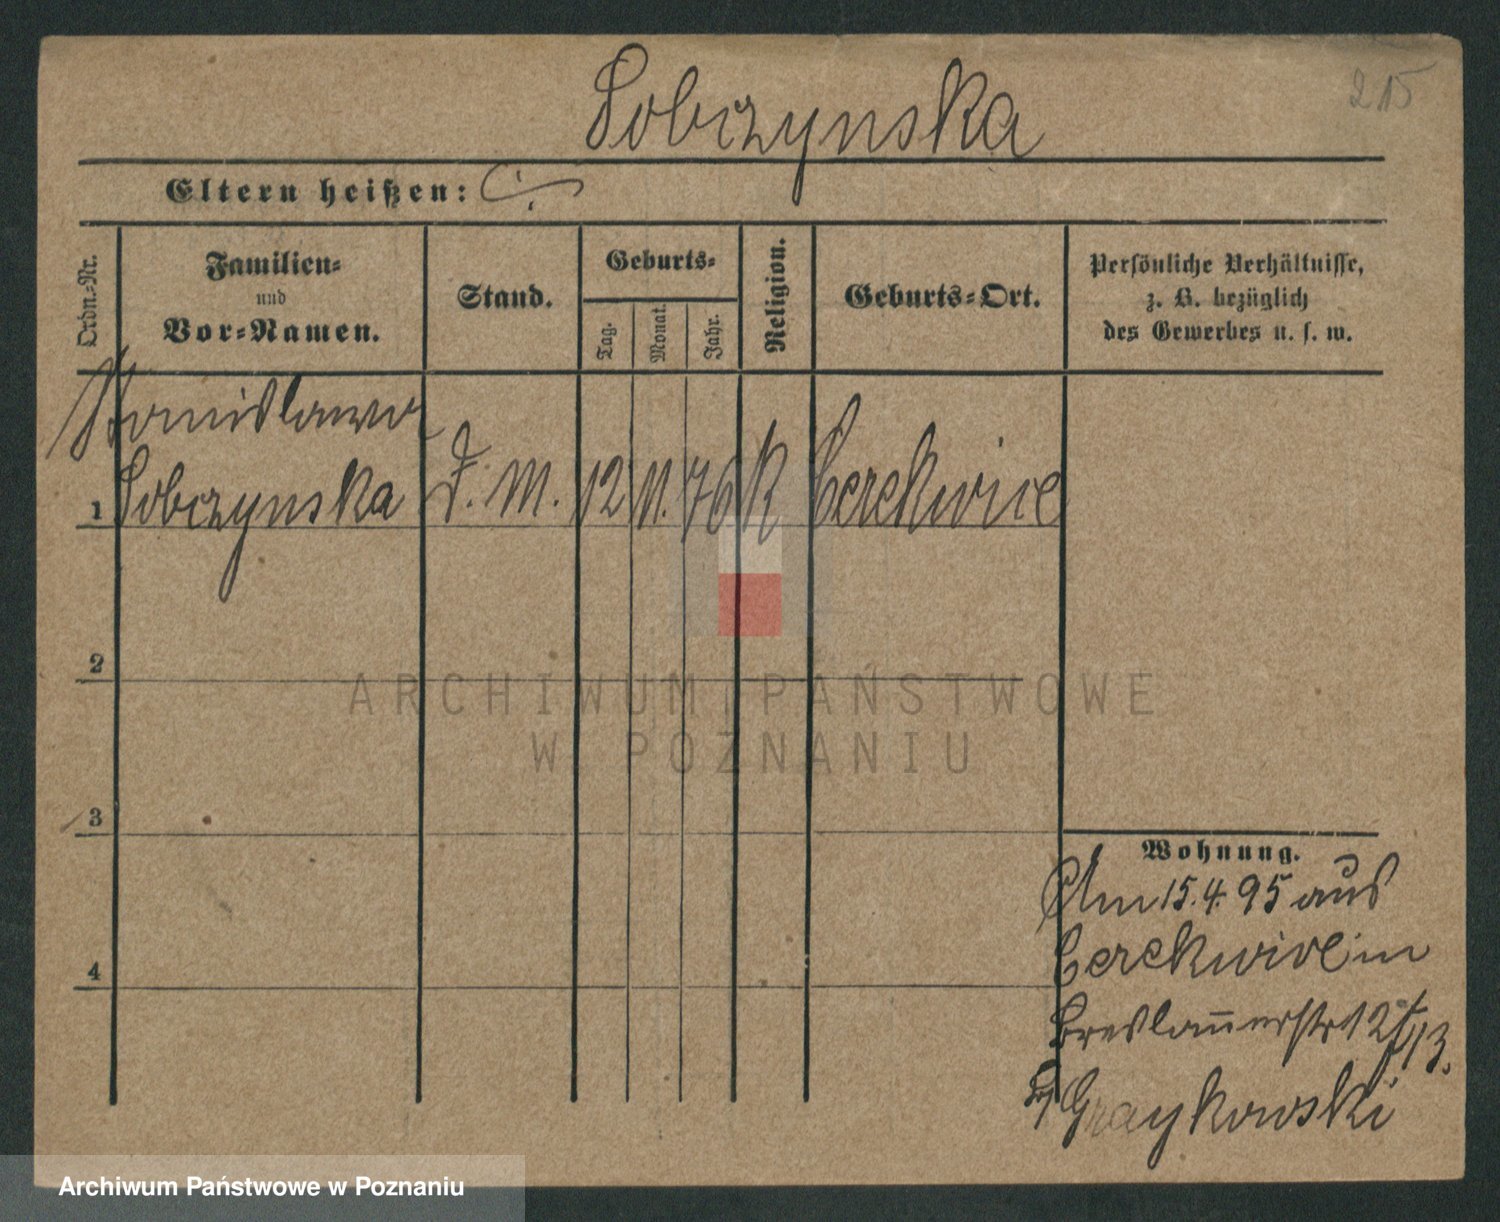 215
Sobczynska
Eltern heißen:
Ordn.-Nr.
Familien-
und
Vor-Namen.
Stand.
Geburts-
Tag.
Monat.
Jahr.
Religion.
Geburts-Ort.
Persönliche Verhältnisse,
z. B. bezüglich
des Gewerbes u. s. w.
Stanislawa
1 Sobczynska D. M. 12 11. 76 K Cerekwice
2
3
4
ARCHIWUM PAŃSTWOWE
W POZNANIU
Wohnung.
Am 15.4.95 aus
Cerekwice in
Breslauerstr 12/13.
Graykowski
Archiwum Państwowe w Poznaniu